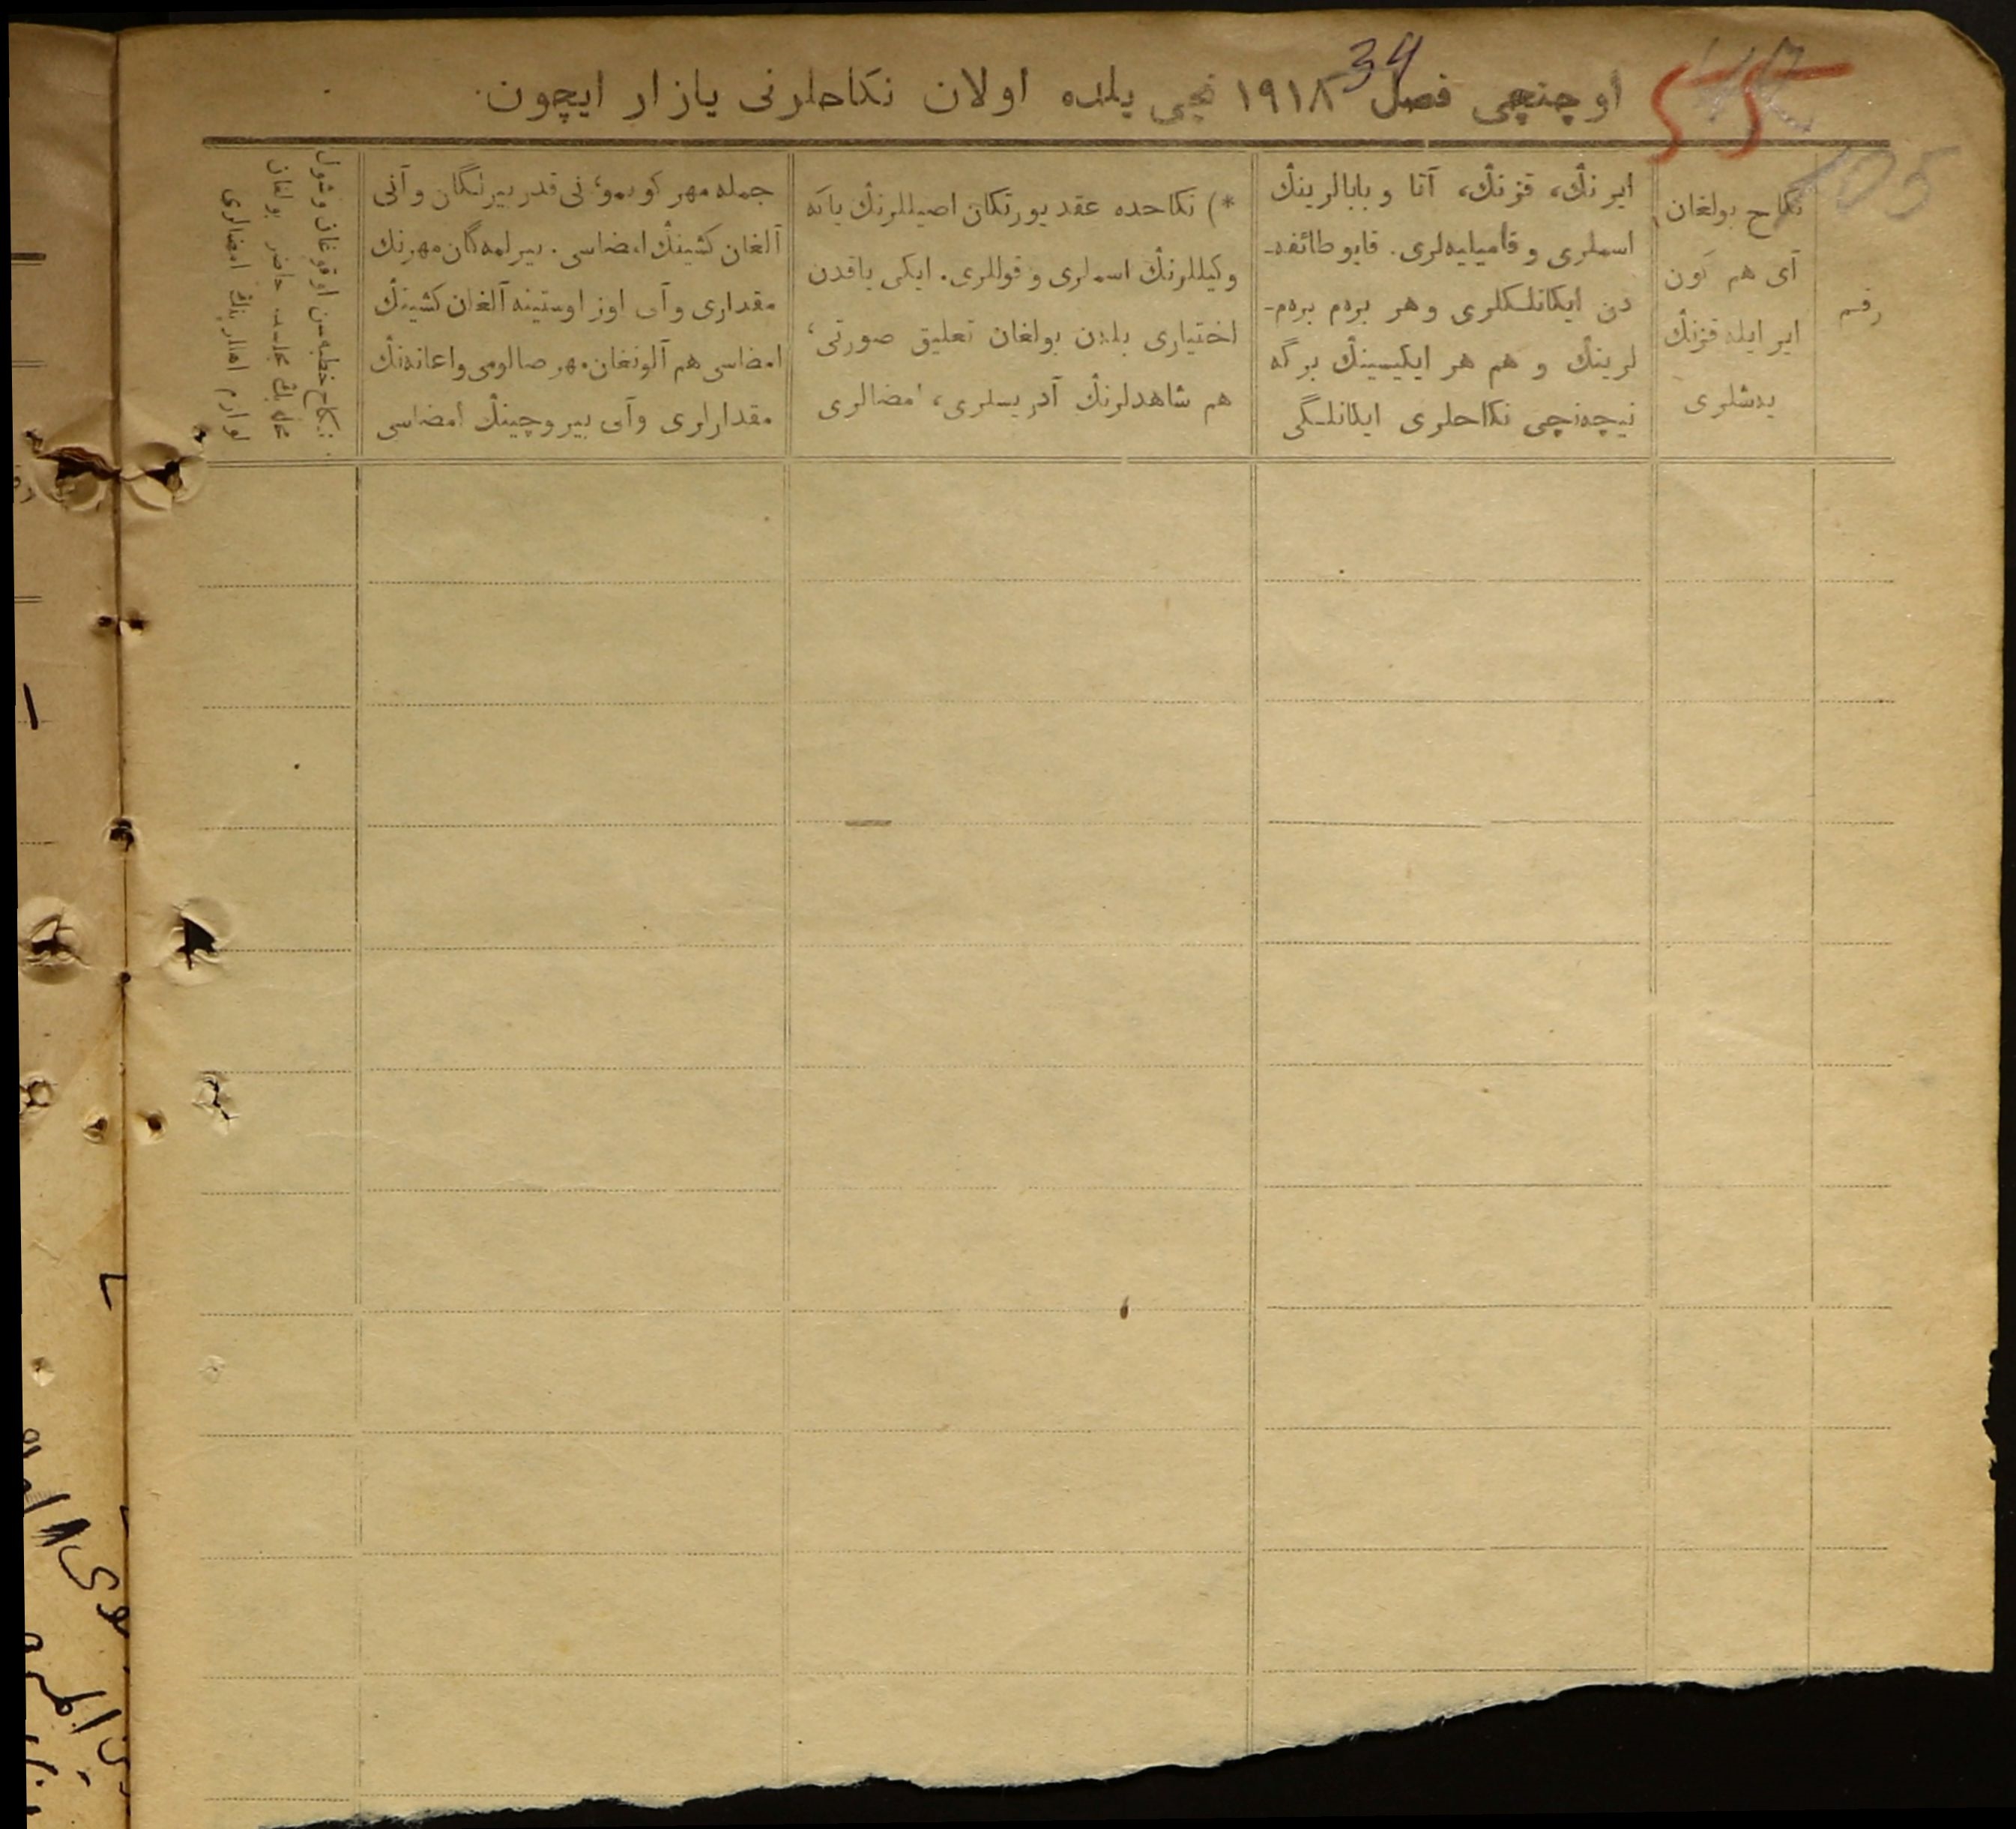 34
55
105
اوچنچی فصل ۱۹۱۸ نچی یلده اولان نکاحلرنی یازار ایچون.
رقم
نکاح بولغان
آی هم کون
ایر ایله قزنڭ
یەشلری
ایرنڭ، قزنڭ، آتا و بابالرینڭ
اسملری و فامیلیه‌لری. قایو طائفه‌-
دن ایکانلکلری و هر بره‌م بره‌م-
لرینڭ و هم هر ایکیسینڭ برگه
نیچه‌نچی نکاحلری ایکانلگی
*) نکاحده عقد یورتکان اصیللرنڭ یاکه
وکیللرنڭ اسملری و قوللری. ایکی یاقدن
اختیاری بلەن بولغان تعلیق صورتی؛
هم شاهدلرنڭ آدریسلری، امضالری
جمله مهر کوبمو؛ نی قدر بیرلگان و آنی
آلغان کشینڭ امضاسی. بیرلمه‌گان مهرنڭ
مقداری و آنی اوز اوستینه آلغان کشینڭ
امضاسی هم آلونغان مهر صالومی واعانه‌نڭ
مقدارلری وآنی بیروچینڭ امضاسی
نکاح خطبه‌سن اوقوغان وشول
مجلسده حاضر بولغان
امضالری